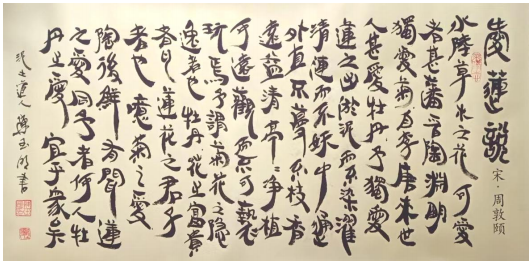 愛蓮說
宋·周敦頤
水陸草木之花可愛
者甚蕃晉陶淵明
獨愛菊自李唐來世
人甚愛牡丹予獨愛
蓮之出淤泥而不染濯
清漣而不妖中通
外直不蔓不枝香
遠益清亭亭淨植
可遠觀而不可褻
玩焉予謂菊花之隱
逸者也牡丹花之富貴
者也蓮花之君子
者也噫菊之愛
陶後鮮有聞蓮
之愛同予者何人牡
丹之愛宜乎衆矣
道人
玉明書